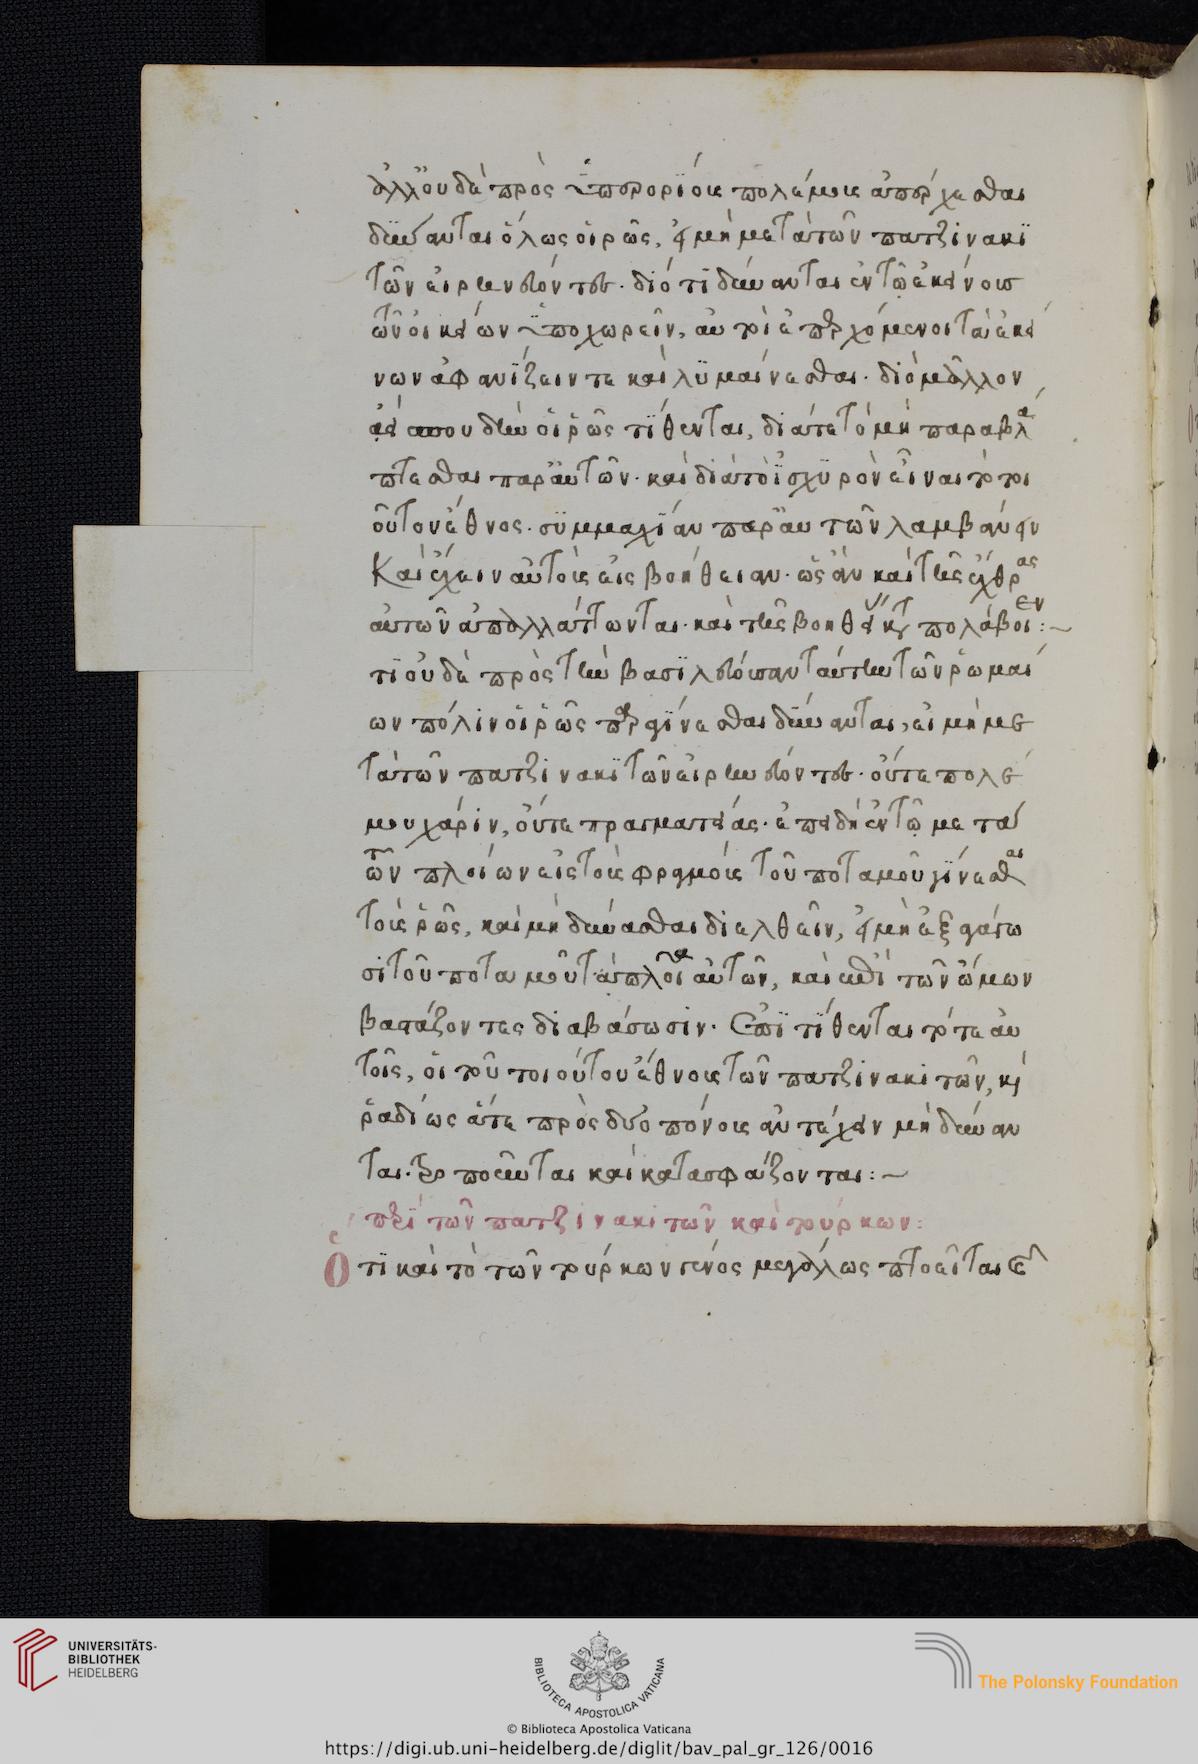 ἀλλ' οὐδὲ πρὸς ὑπερορίους πολέμους ἀπέρχεσθαι
δύνανται ὅλως οἱ ρῶς, εἰ μὴ μετὰ τῶν πατζινακι
τῶν εἰρηνεύοντες· διότι δύνανται ἐν τῷ ἐκείνους
τῶν οἰκείων ὑποχωρεῖν, αὐτοὶ ἐπερχόμενοι τὰ ἐκεί
νων ἀφανίζειν τε καὶ λυμαίνεσθαι· διὸ μᾶλλον
ἀεὶ σπουδὴν οἱ ρῶς τίθενται, διά τε τὸ μὴ παραβλά
πτεσθαι παρ' αὐτῶν· καὶ διὰ τὸ ἰσχυρὸν εἶναι τὸ τοι
οῦτον ἔθνος· συμμαχίαν παρ' αὐτῶν λαμβάνειν
Καὶ ἔχειν αὐτοὺς εἰς βοήθειαν· ὡς ἂν καὶ τῆς ἔχθρας
αὐτῶν ἀπαλλάττωνται· καὶ τῆς βοηθείας καταπολάβοιεν:~
τι οὐδὲ πρὸς τὴν βασιλεύουσαν ταύτην τῶν ῥωμαί
ων πόλιν οἱ ῥῶς παραγίνεσθαι δύνανται, εἰ μὴ με
τὰ τῶν πατζινακιτῶν εἰρηνεύοντες· οὔτε πολέ
μου χάριν, οὔτε πραγματείας· ἐπειδὴ ἐν τῷ μετὰ
τῶν πλοίων εἰς τοὺς φραγμοὺς τοῦ ποταμοῦ γίνεσθαι
τοὺς ῥῶς, καὶ μὴ δύνασθαι διελθεῖν, εἰ μὴ ἐξαγάγω
σι τοῦ ποταμοῦ τὰ πλοῖα αὐτῶν, καὶ ἐπὶ τῶν ὤμων
βαστάζοντες διαβάσωσιν· Ἐπιτίθενται τότε αὐ
τοῖς, οἱ τοῦ τοιούτου ἔθνους τῶν πατζινακιτῶν, καὶ
ῥαδίως ἅτε πρὸς δύο πόνους ἀντέχειν μὴ δύναν
ται· τροποῦνται καὶ κατασφάζονται:~
περὶ τῶν πατζινακιτῶν καὶ τούρκων:
Ὅτι καὶ τὸ τῶν τούρκων γένος μεγάλως πτοεῖται
UNIVERSITÄTS-
BIBLIOTHEK
HEIDELBERG
BIBLIOTECA APOSTOLICA VATICANA
The Polonsky Foundation
© Biblioteca Apostolica Vaticana
https://digi.ub.uni-heidelberg.de/diglit/bav_pal_gr_126/0016